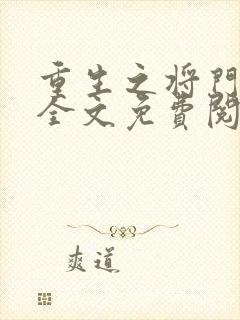 重生之将门
全文免費閱
爽道